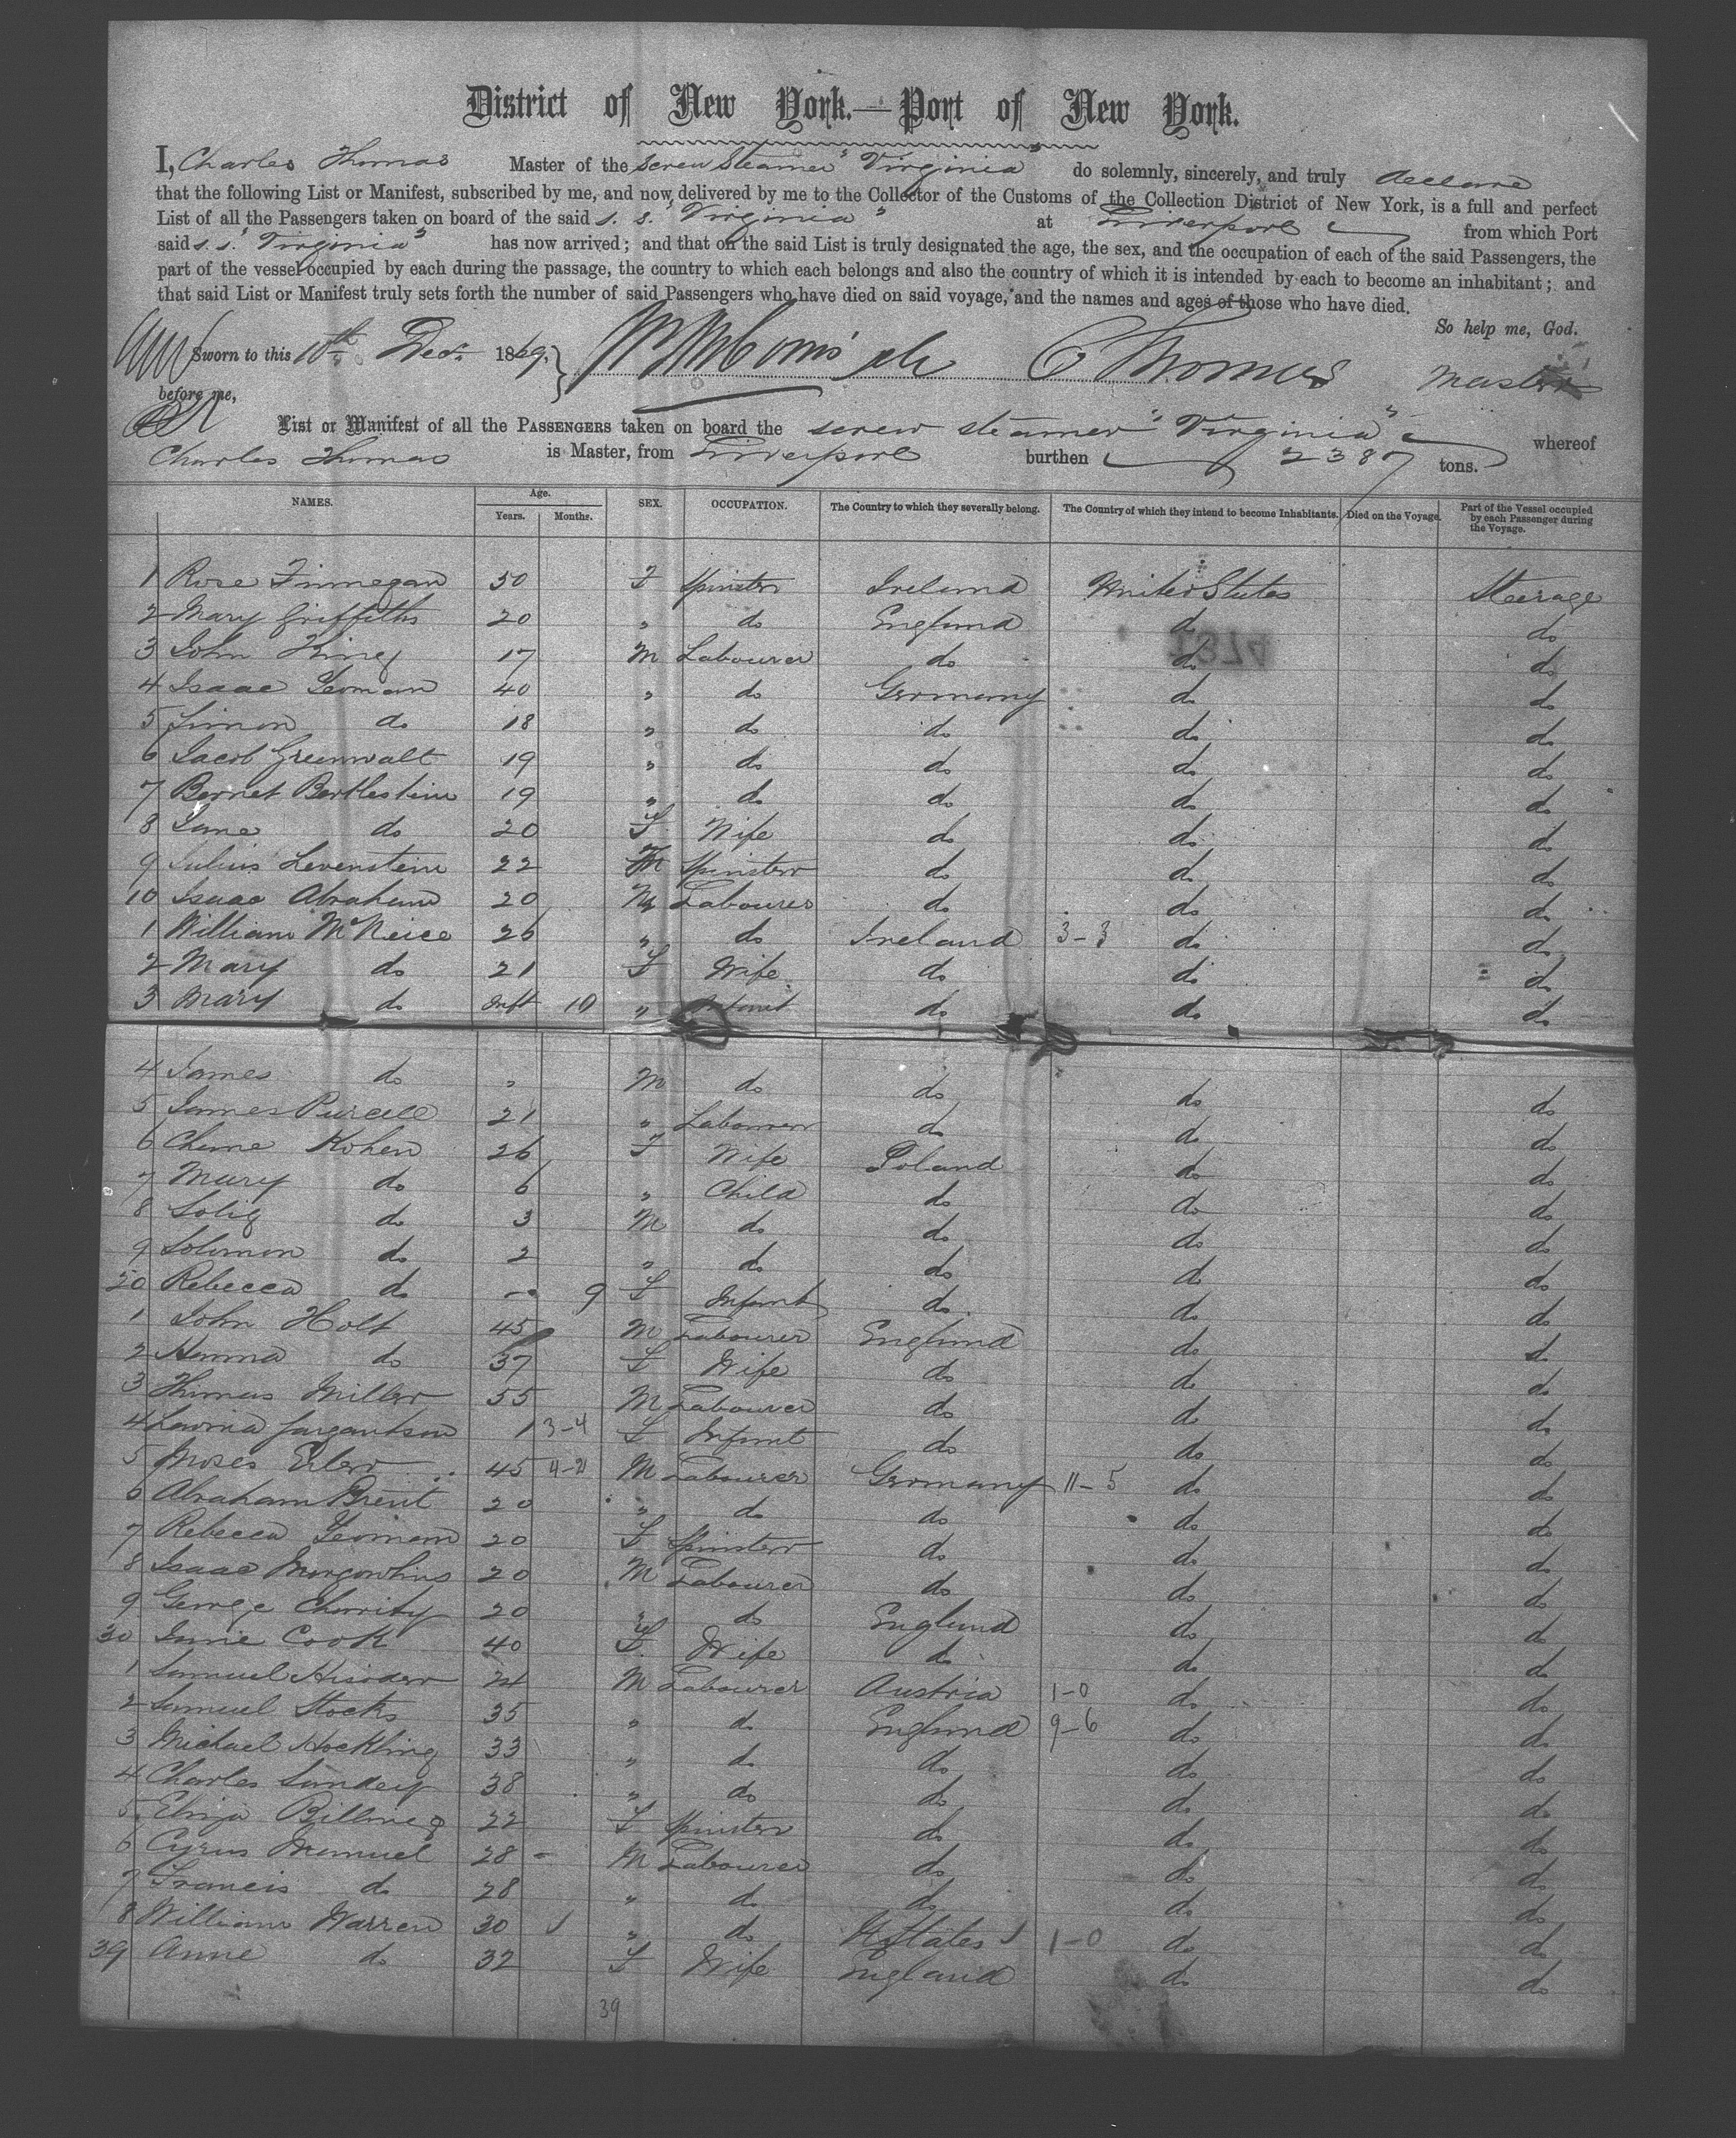 District of New York.—Port of New York.
I, Charles Thomas Master of the screw steamer "Virginia" do solemnly, sincerely, and truly declare
that the following List or Manifest, subscribed by me, and now delivered by me to the Collector of the Customs of the Collection District of New York, is a full and perfect
List of all the Passengers taken on board of the said s. s. "Virginia" at Liverpool from which Port
said s. s. "Virginia" has now arrived; and that on the said List is truly designated the age, the sex, and the occupation of each of the said Passengers, the
part of the vessel occupied by each during the passage, the country to which each belongs and also the country of which it is intended by each to become an inhabitant; and
that said List or Manifest truly sets forth the number of said Passengers who have died on said voyage, and the names and ages of those who have died.
So help me, God.
Sworn to this 10th Dec. 1869, C Thomas Master
before me,
List or Manifest of all the PASSENGERS taken on board the screw steamer "Virginia" whereof
Charles Thomas is Master, from Liverpool burthen 2387 tons.
NAMES. Age. Years. Months. SEX. OCCUPATION. The Country to which they severally belong. The Country of which they intend to become Inhabitants. Died on the Voyage. Part of the Vessel occupied by each Passenger during the Voyage.
1 Rose Finnegan 50 F Spinster Ireland United States Steerage
2 Mary Griffiths 20 " do England do do
3 John King 17 M Labourer do do do
4 Isaac Yeoman 40 " do Germany do do
5 Simon do 18 " do do do do
6 Jacob Greenwalt 19 " do do do do
7 Bernet Bertlestein 19 " do do do do
8 Jane do 20 F Wife do do do
9 Julius Levenstein 22 M Spinster do do do
10 Isaac Abraham 20 M Labourer do do do
1 William McNeice 26 " do Ireland 3-3 do do
2 Mary do 21 F Wife do do do
3 Mary do Inft 10 " Infant do do do
4 James do " M do do do do
5 James Purcell 21 " Labourer do do do
6 Chime Kohen 26 F Wife Poland do do
7 Mary do 6 " Child do do do
8 Solig do 3 M do do do do
9 Solomon do 2 " do do do do
20 Rebecca do - 9 F Infant do do do
1 John Holt 45 M Labourer England do do
2 Hanna do 37 F Wife do do do
3 Thomas Miller 55 M Labourer do do do
4 Lavina 1 3-4 F Infant do do do
5 Moses 45 4-21 M Labourer Germany 11-5 do do
6 Abraham Brent 20 " do do do do
7 Rebecca Yeoman 20 F Spinster do do do
8 Isaac 20 M Labourer do do do
9 George Charity 20 " do England do do
30 Jane Cook 40 F Wife do do do
1 Samuel 24 M Labourer Austria 1-0 do do
2 Samuel Stocks 35 " do England 9-6 do do
3 Michael Hockling 33 " do do do do
4 Charles Sandey 38 " do do do do
5 Eliza Billing 22 F Spinster do do do
6 Cyrus Memuel 28 - M Labourer do do do
7 Francis do 28 " do do do do
8 William Warren 30 " do U States 1-0 do do
39 Anne do 32 F Wife England do do
39